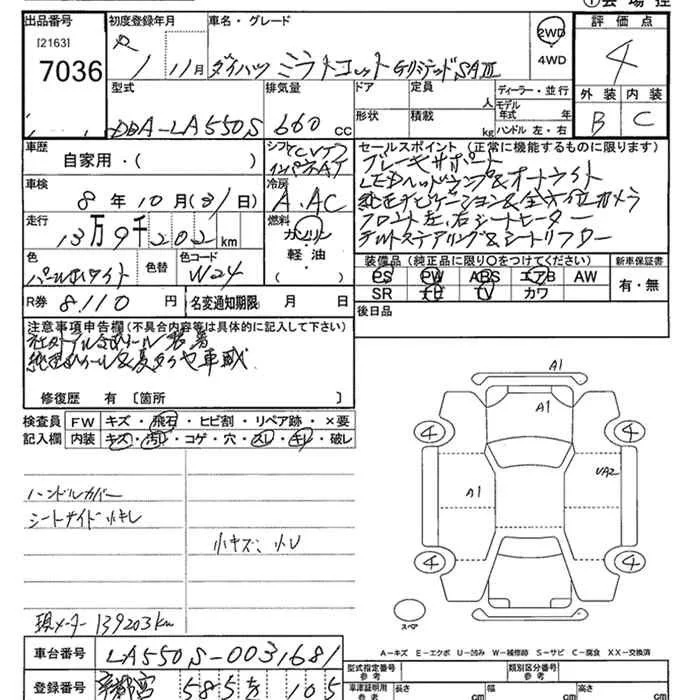 出品番号
[2163]
7036
初度登録年月
1年11月
車名・グレード
ダイハツ ミラトコット GリミテッドSAⅢ
2WD
4WD
評価点
4
外装 内装
B C
型式
DBA-LA550S
排気量
660 cc
ドア
形状
定員
人
積載
kg
ディーラー・並行
モデル年式 年
ハンドル 左・右
車歴
自家用・( )
シフト
CVT
インパネAT
セールスポイント(正常に機能するものに限ります)
ブレーキサポート
LEDヘッドランプ&オートライト
純正ナビゲーション&全方位カメラ
フロント左、右シートヒーター
チルトステアリング&シートリフター
車検
8年10月(31日)
冷房
A.AC
走行
13万9千202km
燃料
ガソリン
・
軽油・
( )
色
パールホワイト
色替
色コード
W24
装備品(純正品に限り○をつけてください)
PS PW ABS エアB AW
SR ナビ TV カワ
新車保証書
有・無
R券 8.110円
名変通知期限 月 日
後日品
注意事項申告欄(不具合内容等は具体的に記入して下さい)
社外アルミホイール装着
純正ホイール&夏タイヤ車載
修復歴 有〔箇所 〕
検査員記入欄
FW キズ・飛石・ヒビ割・リペア跡・×要
内装 キズ・汚レ・コゲ・穴・スレ・キレ・破レ
ハンドルカバー
シートサイド小キレ
小キズ、小レ
現メーター139203km
A1
A1
4 4
A1
UA2
4 4
スペア
A-キズ E-エクボ U-凹み W-補修跡 S-サビ C-腐食 XX-交換済
車台番号 LA550S-0031681
型式指定番号
参考
類別区分番号
参考
登録番号 宇都宮 585 を 105
車庫証明用
参考
長さ cm
幅 cm
高さ cm